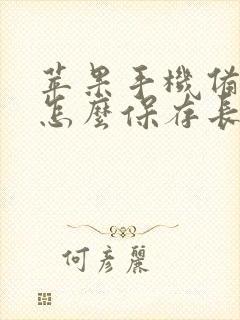 苹果手機備
怎麼保存長
何彥麗